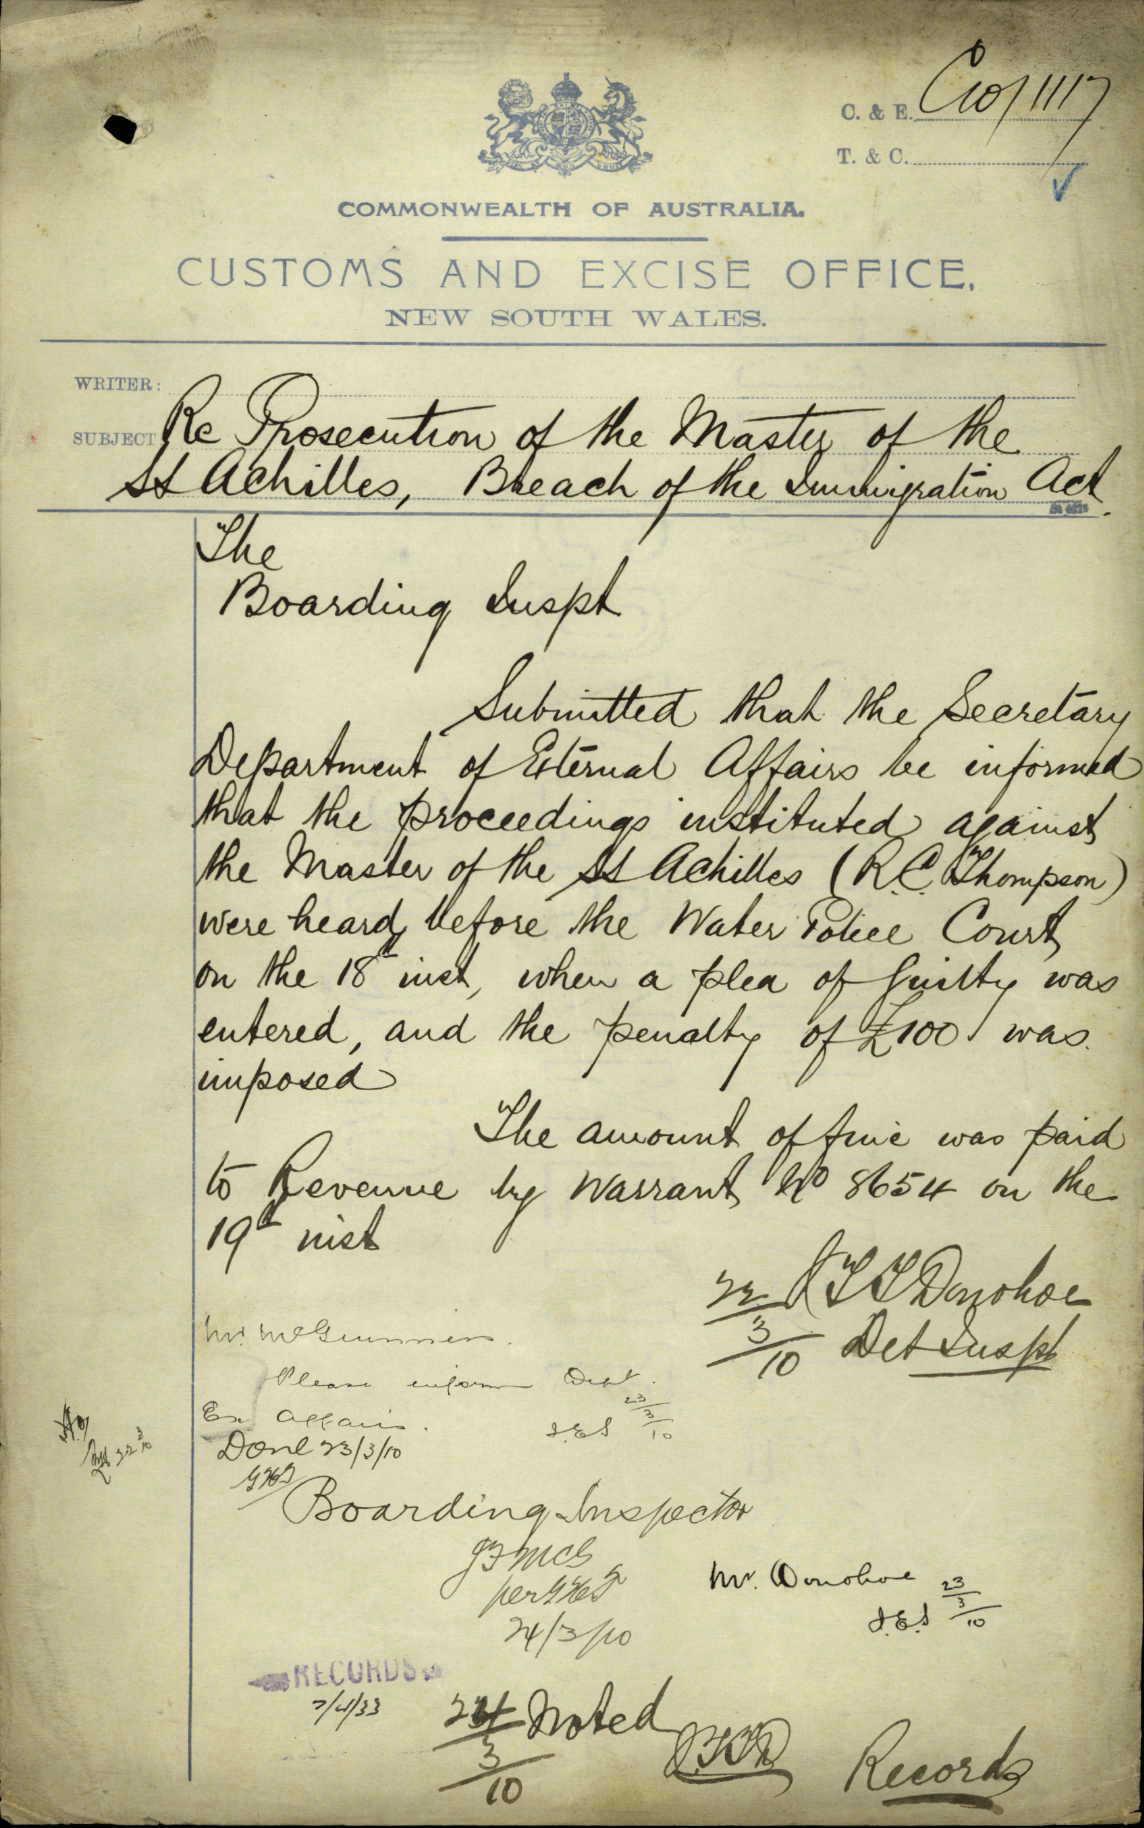 C. & E. C10/1117
T. & C.
COMMONWEALTH OF AUSTRALIA.
CUSTOMS AND EXCISE OFFICE.
NEW SOUTH WALES.
WRITER:
SUBJECT Re Prosecution of the Master of the
SS Achilles, Breach of the Immigration Act.
The
Boarding Inspt
Submitted that the Secretary
Department of External Affairs be informed
that the proceedings instituted against
the Master of the SS Achilles (R.C. Thompson)
were heard before the Water Police Court
on the 18th inst, when a plea of Guilty was
entered, and the penalty of £100 was
imposed
The amount of fine was paid
to Revenue by Warrant No 8654 on the
19th inst
22/3/10 J T T Donohoe
Det Inspt
Mr.
Please inform Dept.
Ex. Affairs.
J.E.S 23/3/10
Done 23/3/10
Boarding Inspector
24/3/10
Mr. Donohoe
J.E.S 23/3/10
RECORDS
7/4/33
24/3/10 Noted
Records